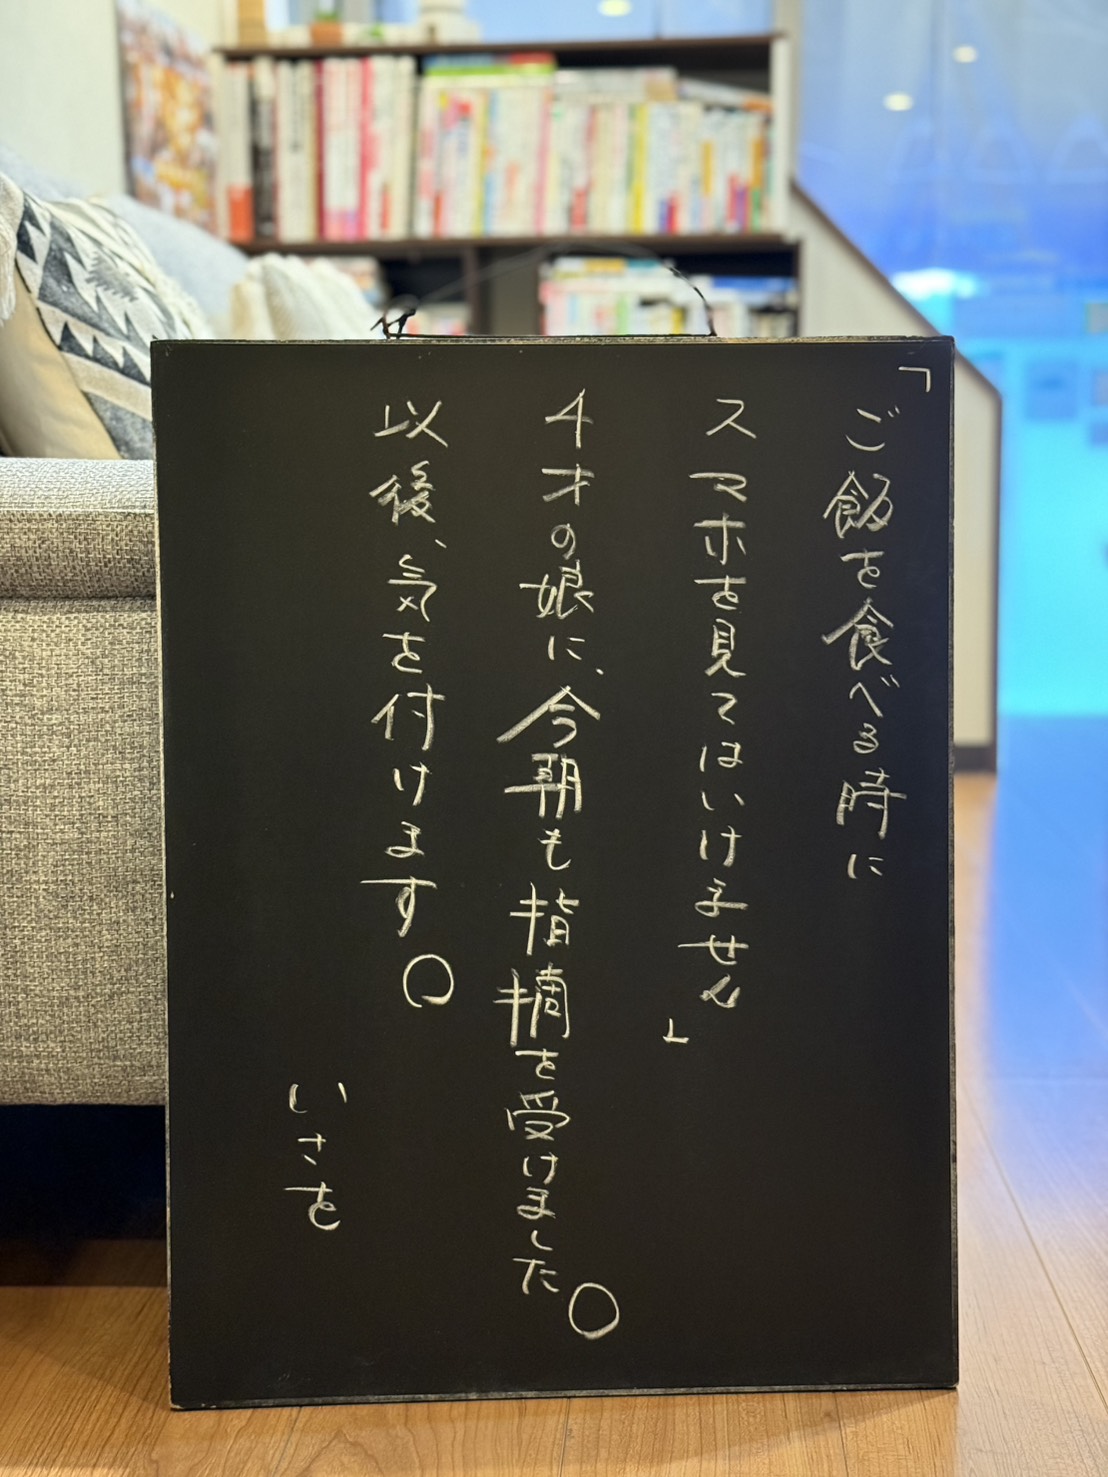 「ご飯を食べる時に
スマホを見てはいけません」
4才の娘に、今朝も指摘を受けました。
以後、気を付けます。
いさを